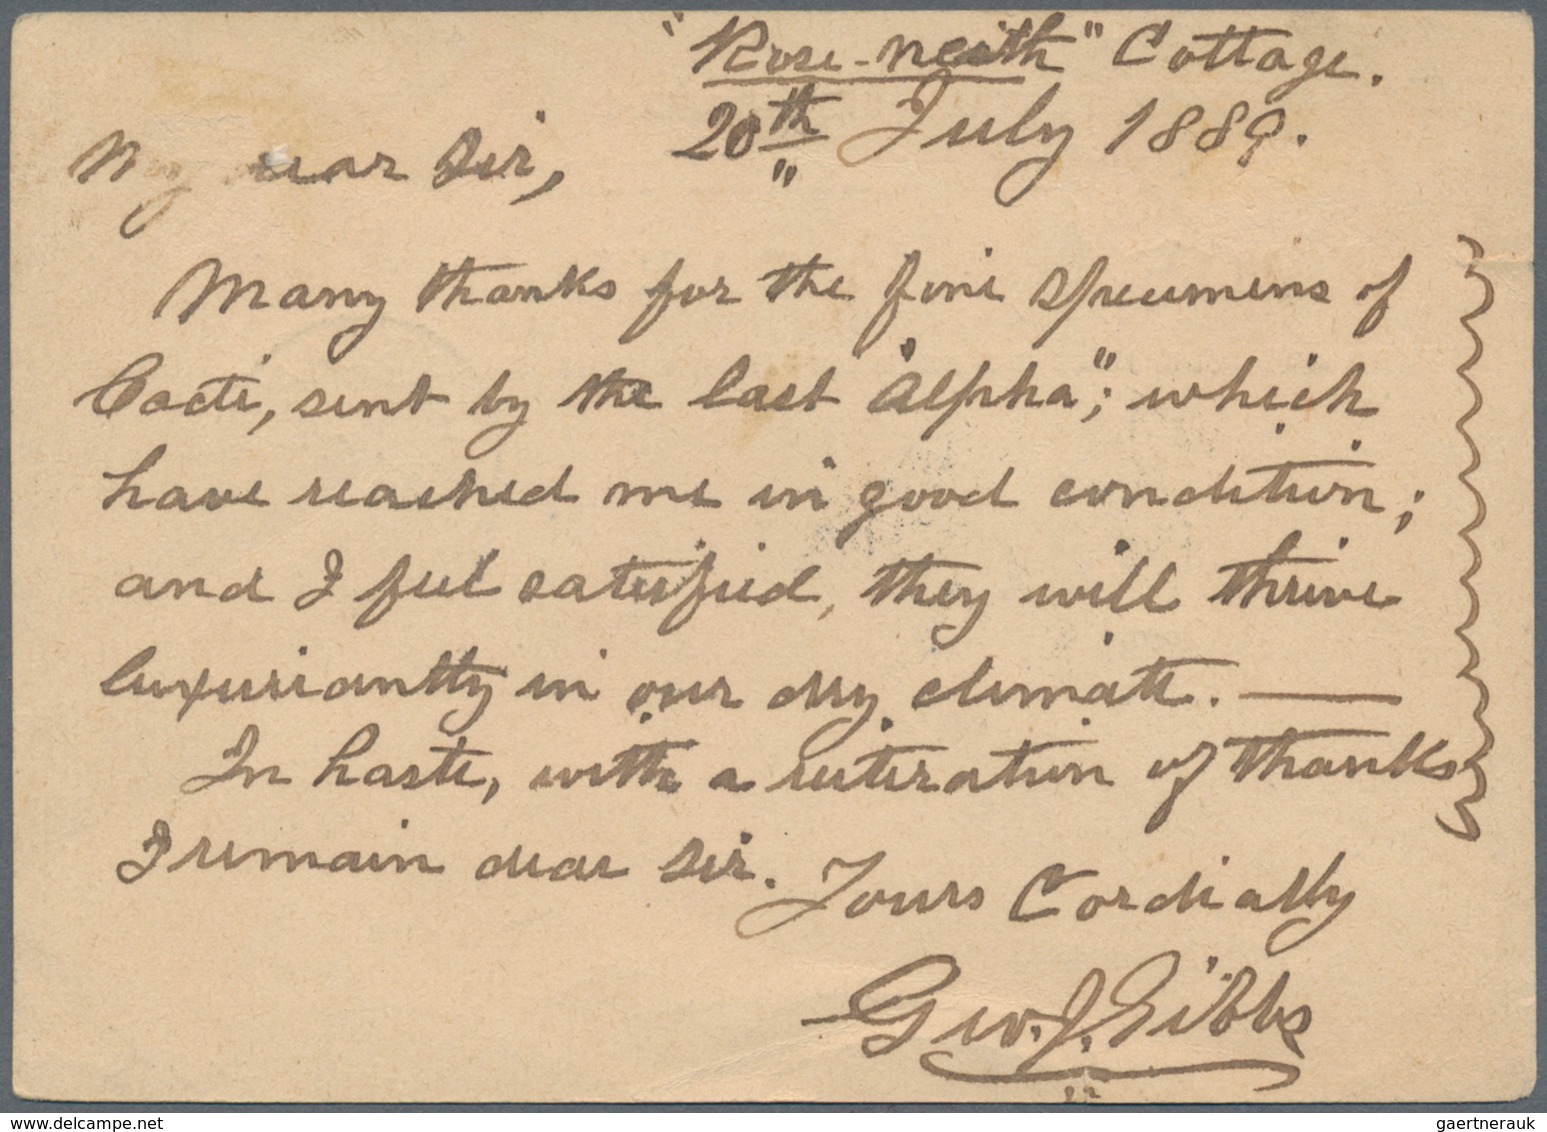 "Rose-neith" Cottage.
20th July 1889.
My dear Sir,
Many thanks for the fine specimens of
Cacti, sent by the last "Alpha"; which
have reached me in good condition;
and I feel satisfied, they will thrive
luxuriantly in our dry climate. —
In haste, with a reiteration of thanks
I remain dear Sir.
Yours Cordially
Geo. J. Gibbs
www.delcampe.net
gaertnerauk